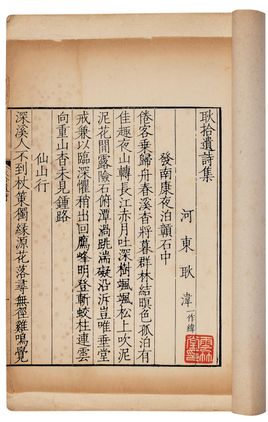 耿拾遺詩集
河東耿湋一作緯
發南康夜泊灨石中
倦客乗歸舟春溪杳將暮群林結暝色孤泊有
佳趣夜山轉長江赤月吐深樹颯颯松上吹泥
泥花開露險石俯潭渦跳湍礙沿泝豈唯垂堂
戒兼以臨深懼稍出迴鴈峰明登斬蛟柱連雲
向重山杳未見鍾路
仙山行
深溪人不到杖策獨緣源花落尋無徑雞鳴覺